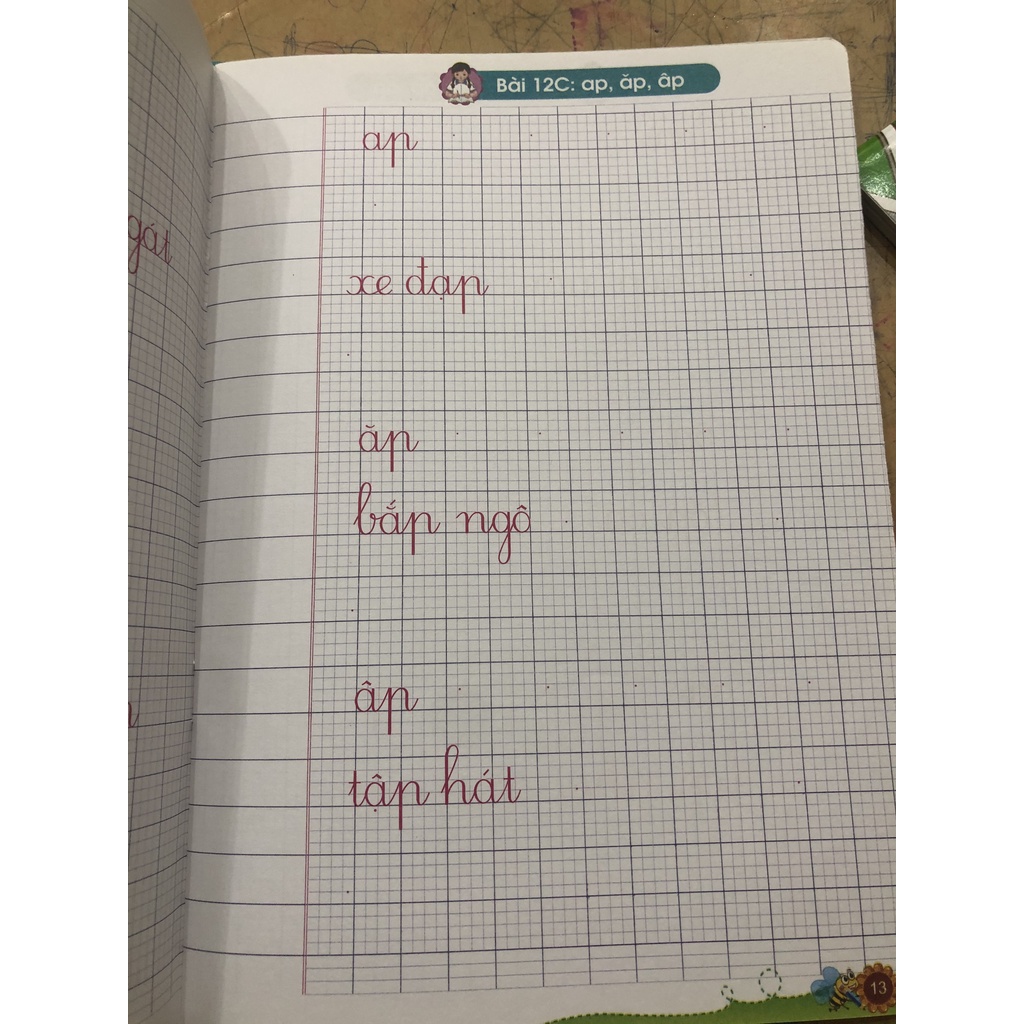 Bài 12C: ap, ăp, âp
gát
ap
xe đạp
ăp
bắp ngô
âp
tập hát
13